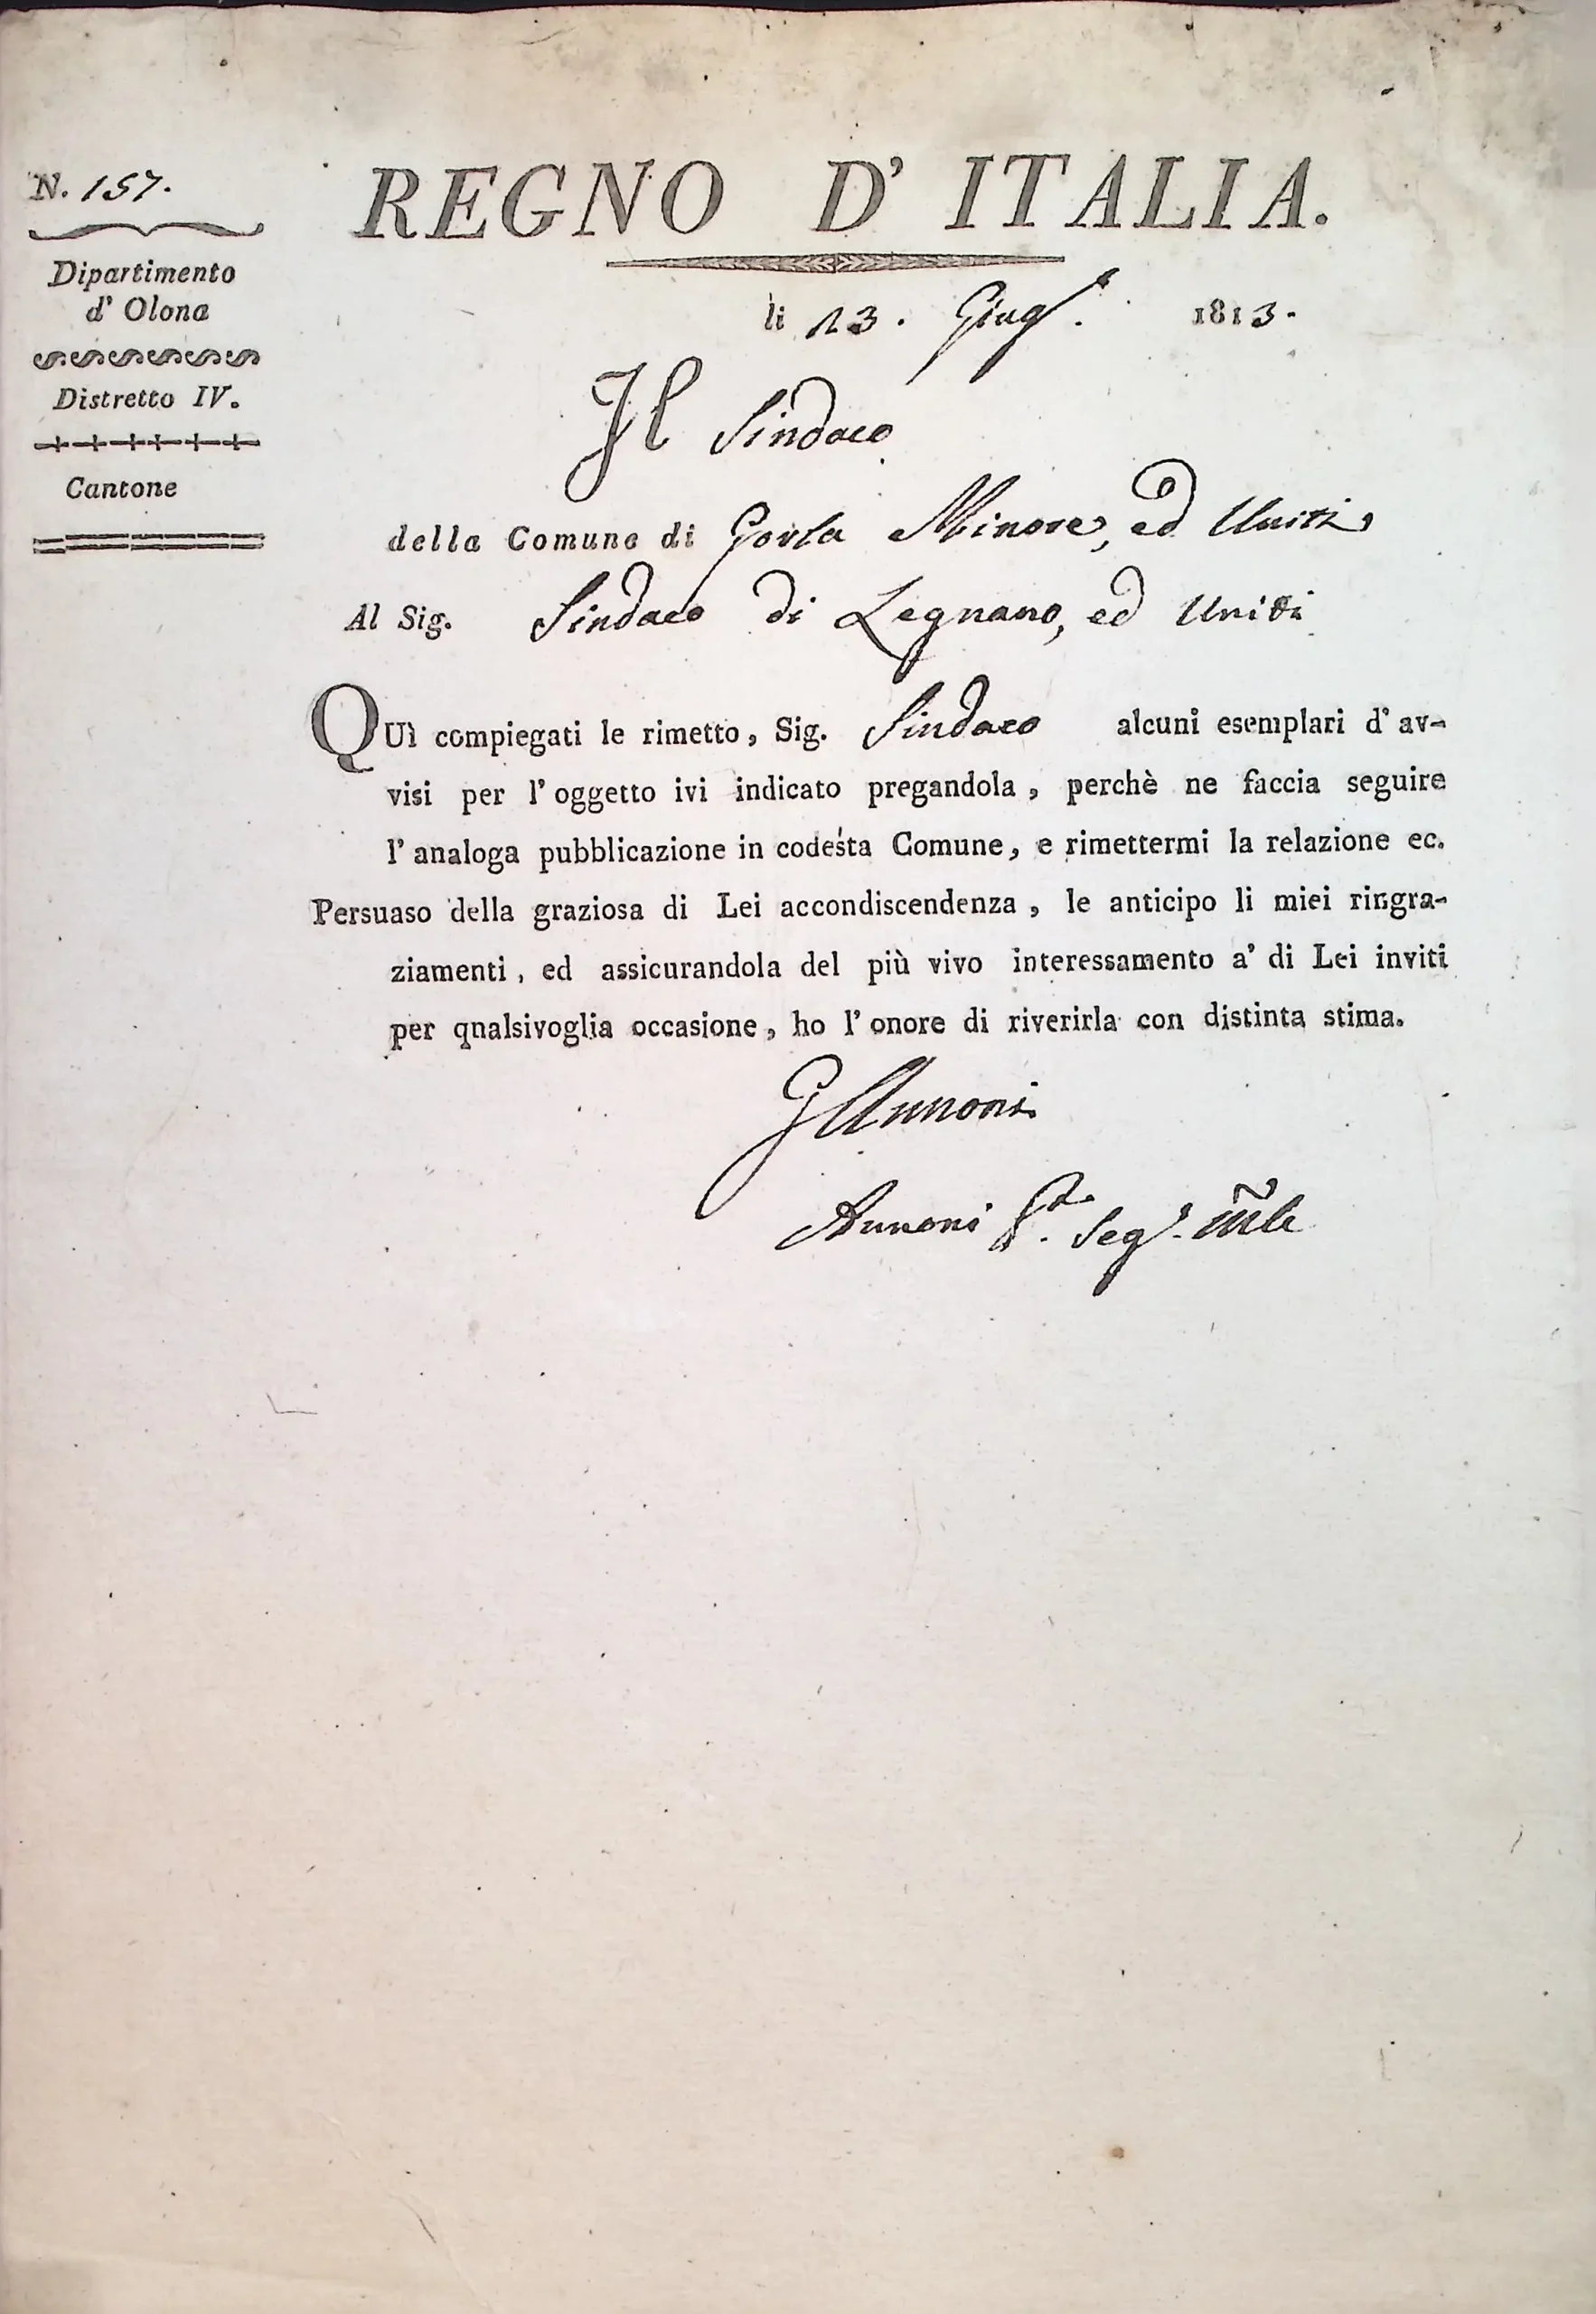 N. 157.
Dipartimento
d' Olona
Distretto IV.
Cantone
REGNO D' ITALIA.
li 13. Giug.º 1813.
Il Sindaco
della Comune di Gorla Minore, ed Uniti,
Al Sig. Sindaco di Legnano, ed Uniti
QUì compiegati le rimetto, Sig. Sindaco alcuni esemplari d' av-
visi per l' oggetto ivi indicato pregandola, perchè ne faccia seguire
l' analoga pubblicazione in codesta Comune, e rimettermi la relazione ec.
Persuaso della graziosa di Lei accondiscendenza, le anticipo li miei ringra-
ziamenti, ed assicurandola del più vivo interessamento a' di Lei inviti
per qnalsivoglia occasione, ho l' onore di riverirla con distinta stima.
G Annoni
Annoni Seg.º